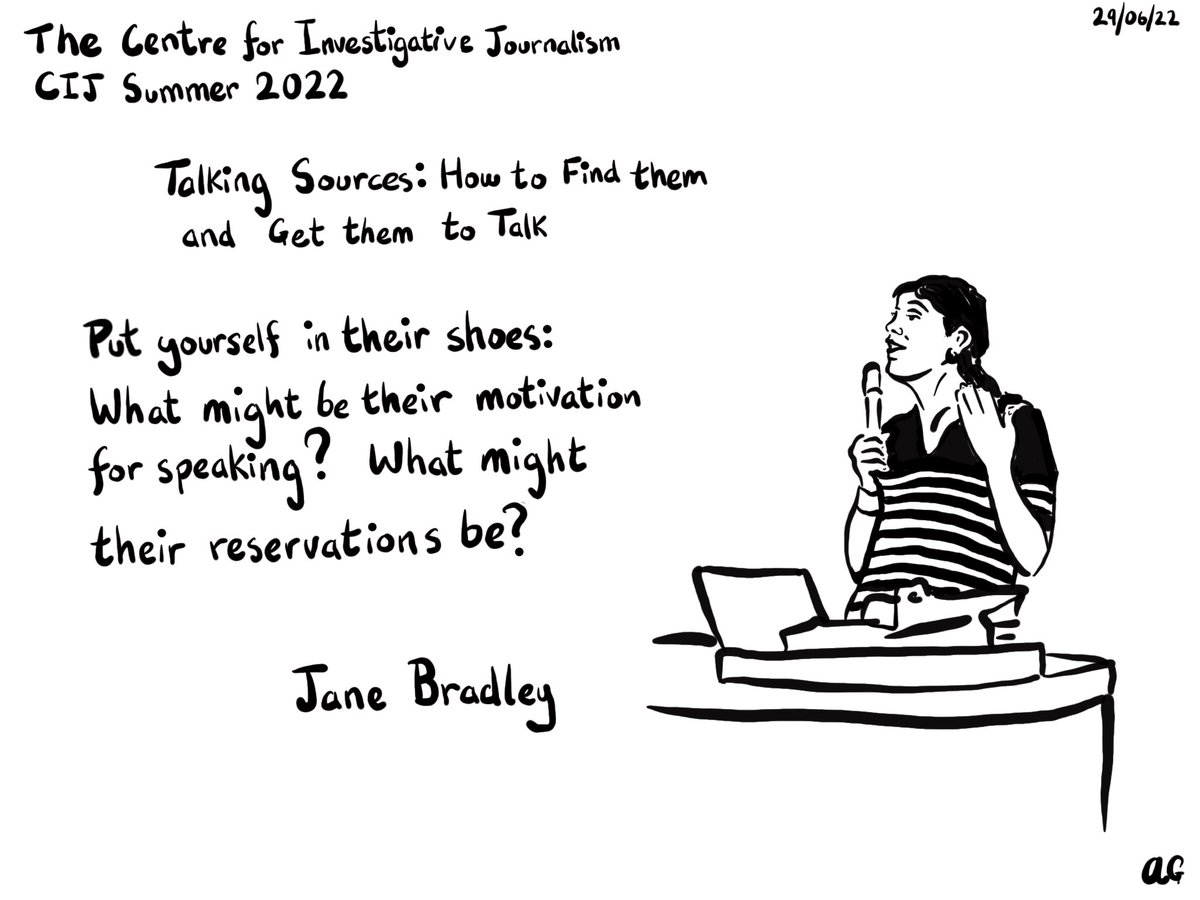 The Centre for Investigative Journalism
CIJ Summer 2022
29/06/22
Talking Sources: How to Find them
and Get them to Talk
Put yourself in their shoes:
What might be their motivation
for speaking? What might
their reservations be?
Jane Bradley
aG